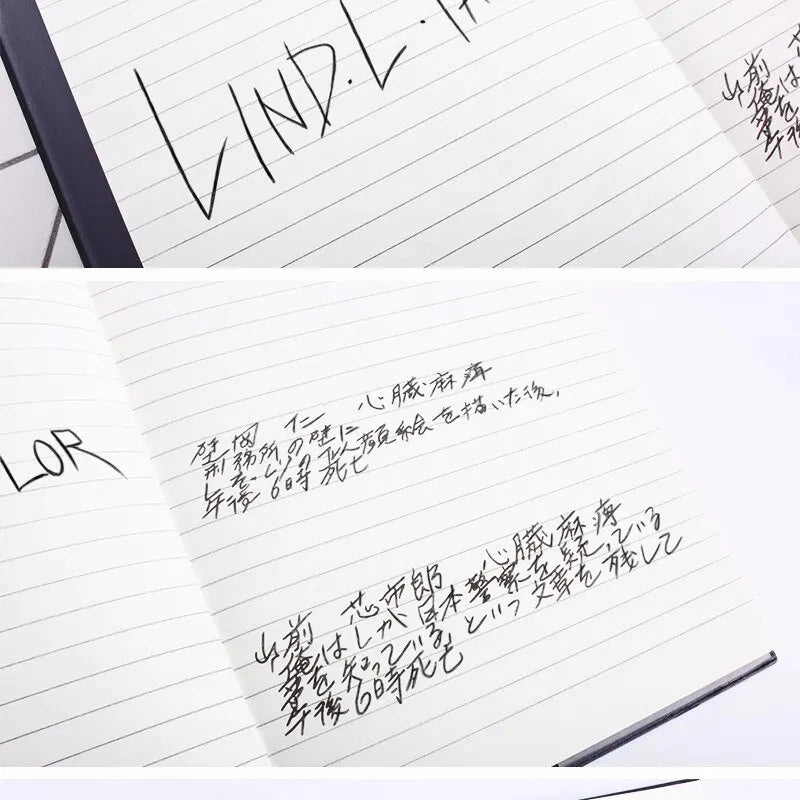 LIND.L.
前
俺は
を
午後
LOR
仁 心臓麻痺
刑務所の壁に
顔絵を描いた後,
午後6時死亡
前 芯市郎 心臓麻痺
俺はしが日本警察を疑っている
を知っている、という文章を残して
午後6時死亡